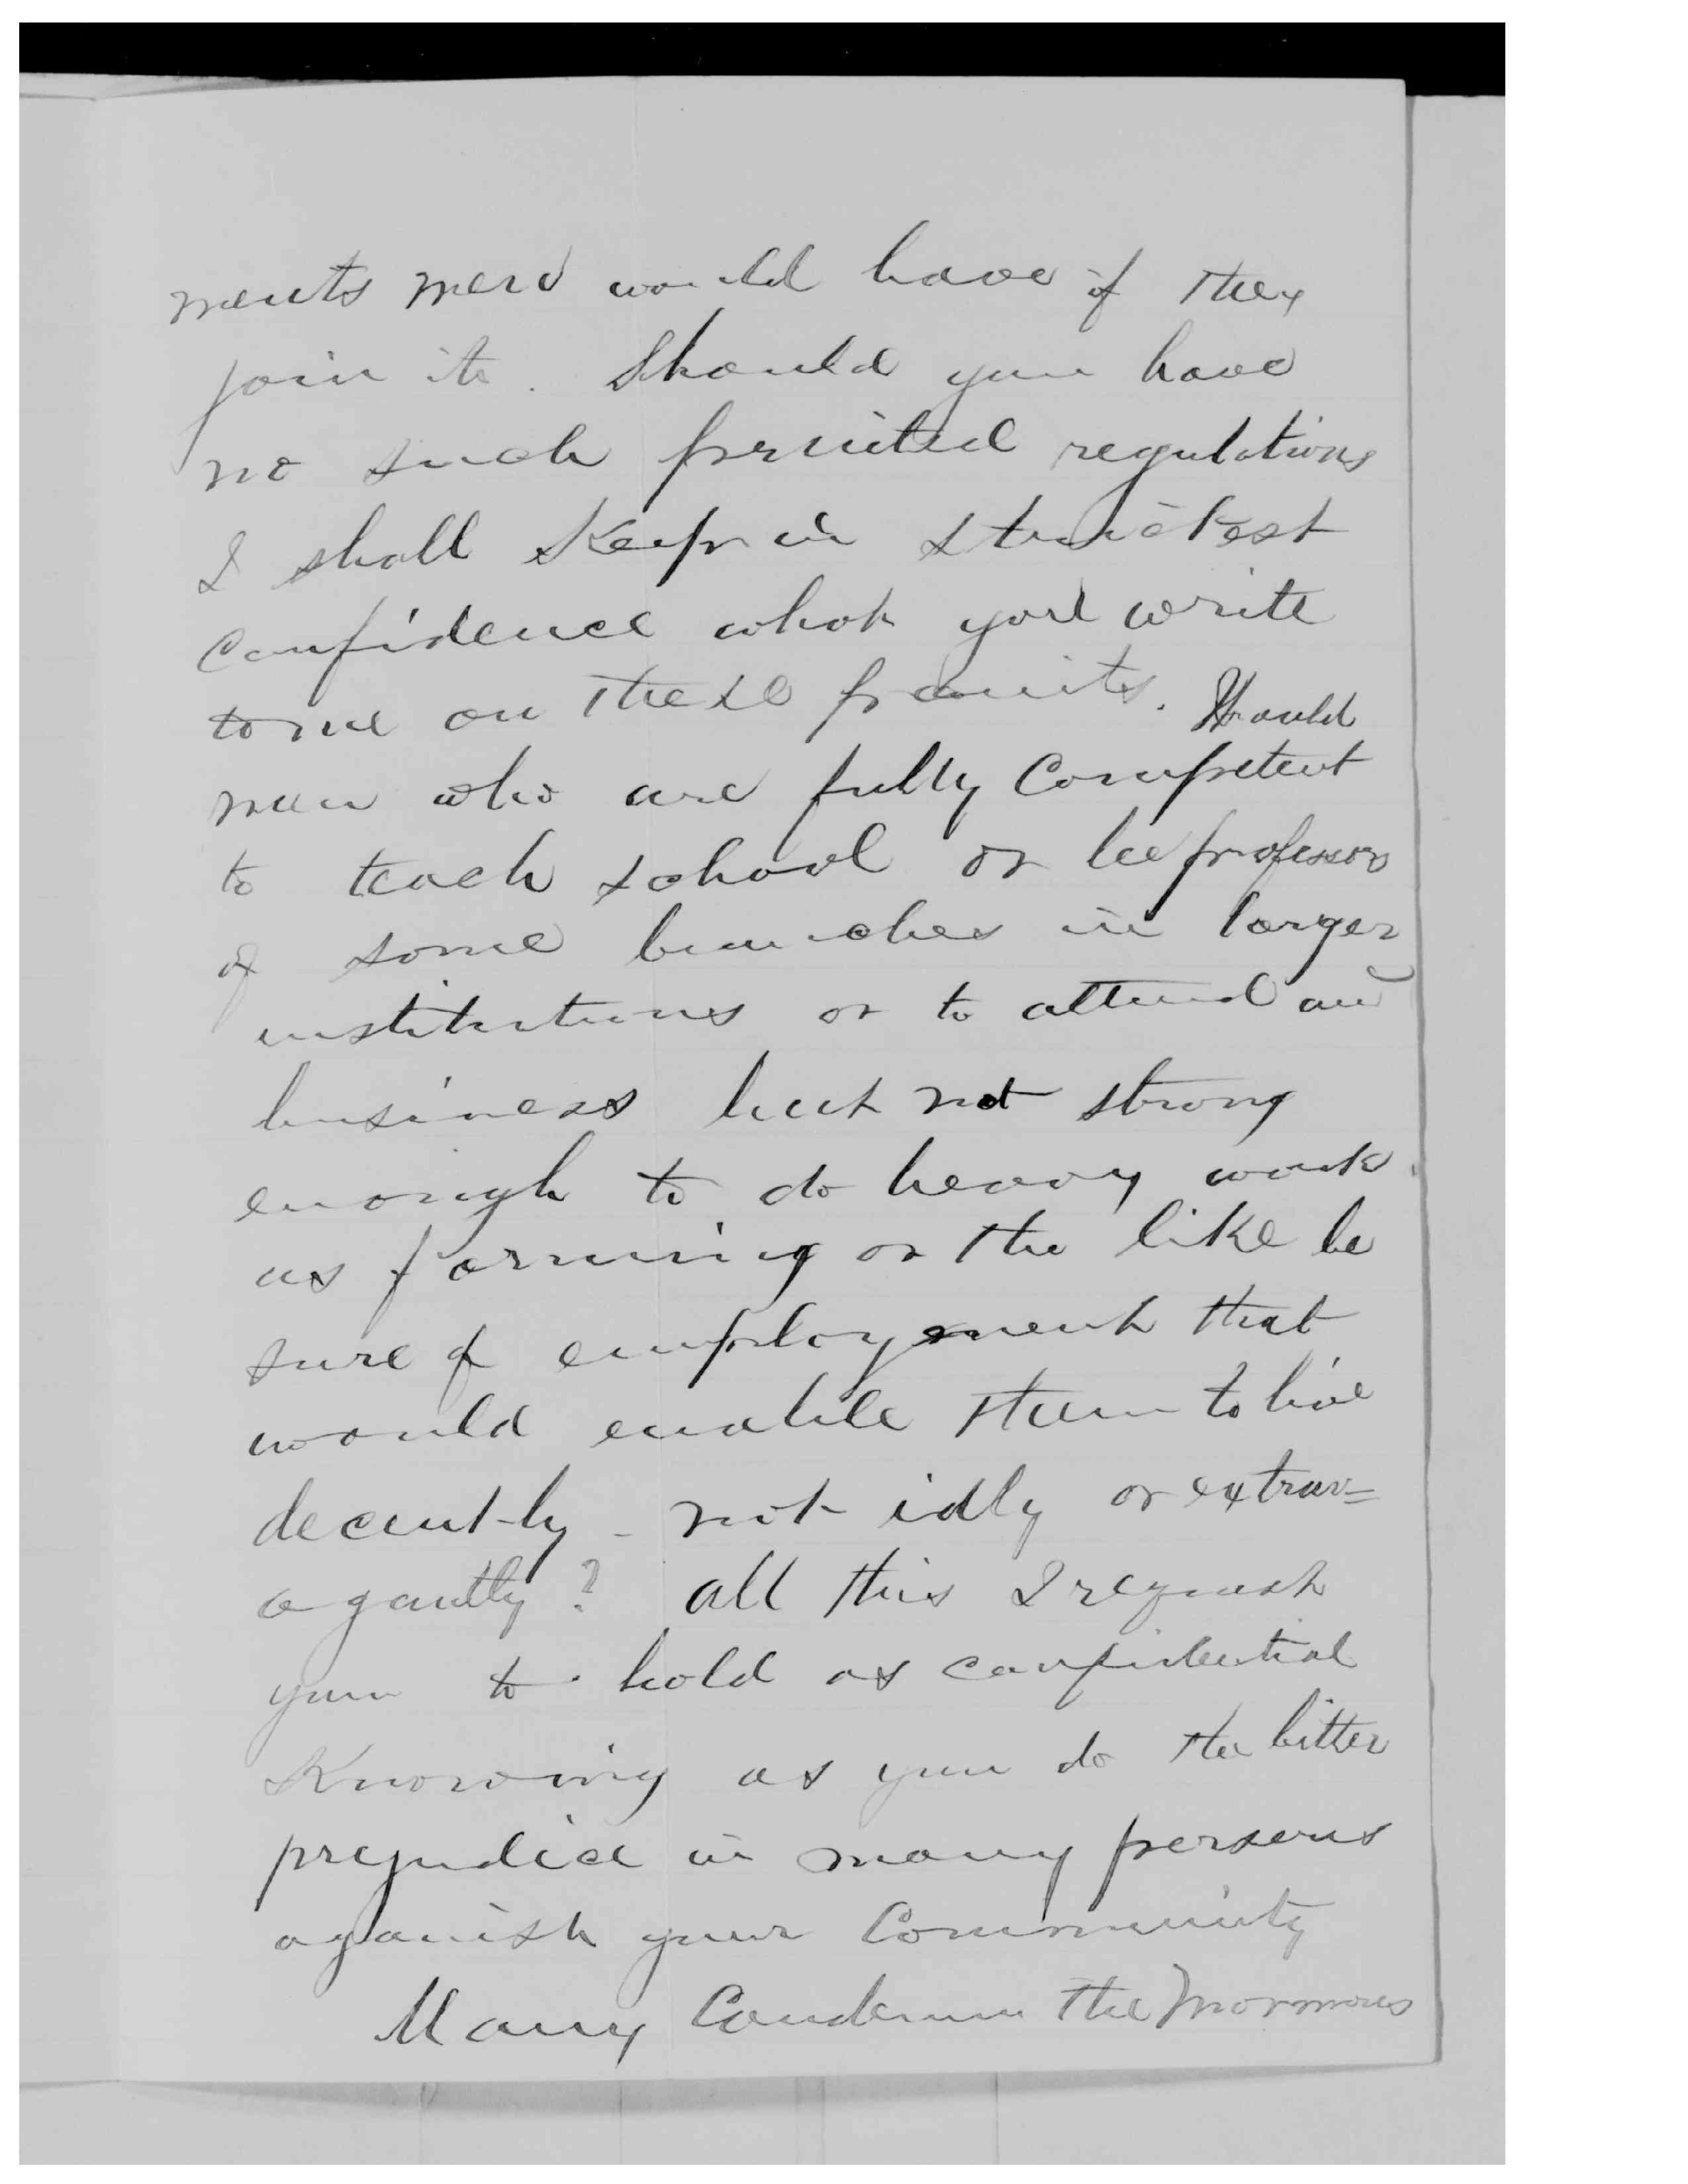 ments men would have if they
join it. Should you have
no such printed regulations
I shall keep in strictest
confidence what you write
to me on these points. Would
men who are fully competent
to teach school or be professors
of some branches in larger
institutions or to attend
business but not strong
enough to do heavy work
as farming or the like be
sure of employment that
would enable them to live
decently - not idly or extrav=
agantly? all this I request
you to hold as confidential
Knowing as you do the bitter
prejudice in many persons
against your Community
Many Condemn the Mormons